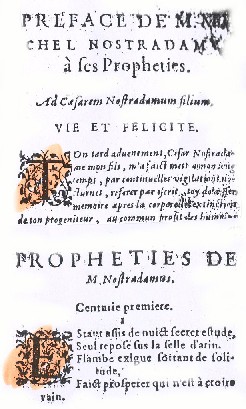 PREFACE DE M. MI
CHEL NOSTRADAMV
à ses Propheties.
Ad Cæsarem Nostradamum filium,
VIE ET FELICITE.
TOn tard aduenement, Cesar Nostrada-
me mon fils, m'a faict mettre mon long
temps, par continuelles vigilations no-
cturnes, referer par escrit, toy delaisser
memoire apres la corporelle extinction
de ton progeniteur, au commun profit des humains
PROPHETIES DE
M. Nostradamus.
Centurie premiere.
I
EStant assis de nuict secret estude,
Seul reposé sus la selle d'arin.
Flambe exigue sortant de soli-
tude,
Faict prosperer qui n'est à croire
vain.